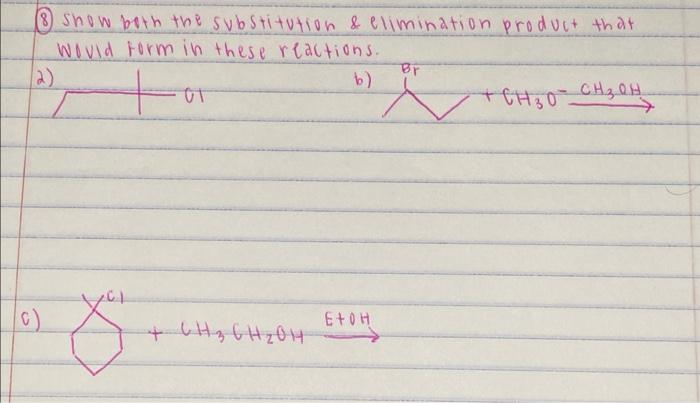 ⑧ Show both the substitution & elimination product that
would form in these reactions.
a)
Cl
b)
Br
+ CH₃O⁻ CH₃OH
c)
Cl
+ CH₃CH₂OH EtOH